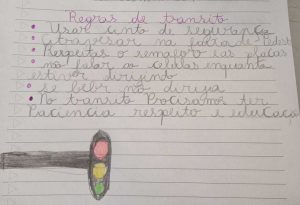 Regras de transito
Usar cinto de segurança
atravessar na faixa de
Respeitar o semaforo e as placas
não falar ao celular enquanto
estiver dirijindo
se beber não dirija
No transito Precisamos ter
Paciencia respeito e educação